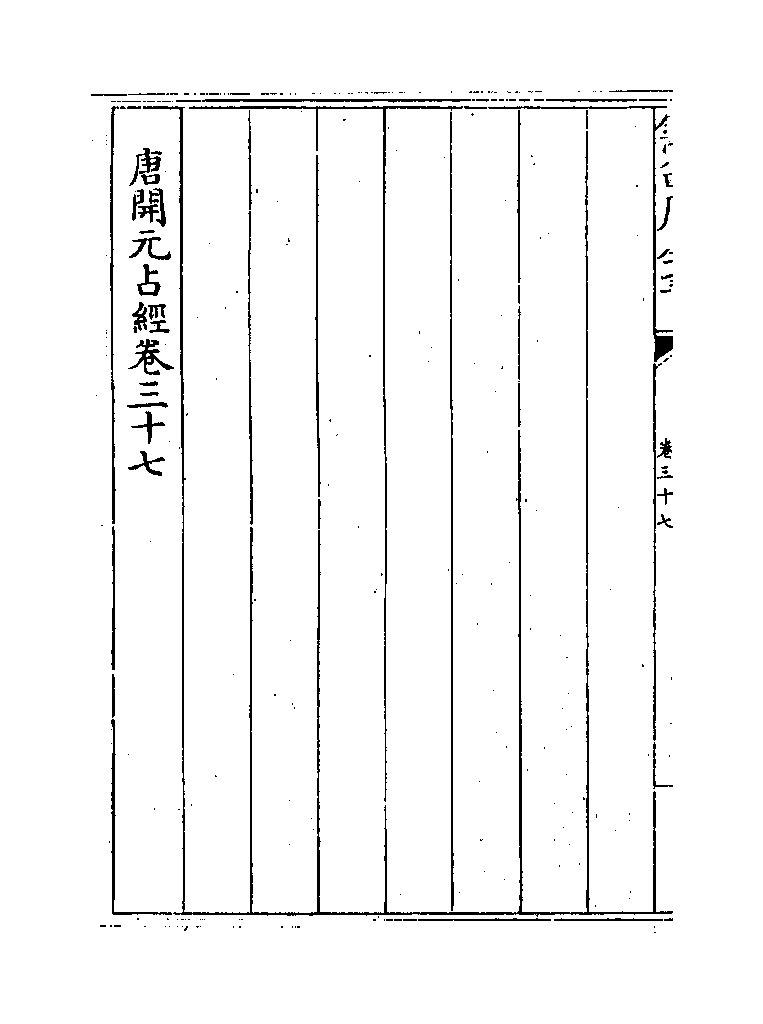 卷三十七
唐開元占經卷三十七